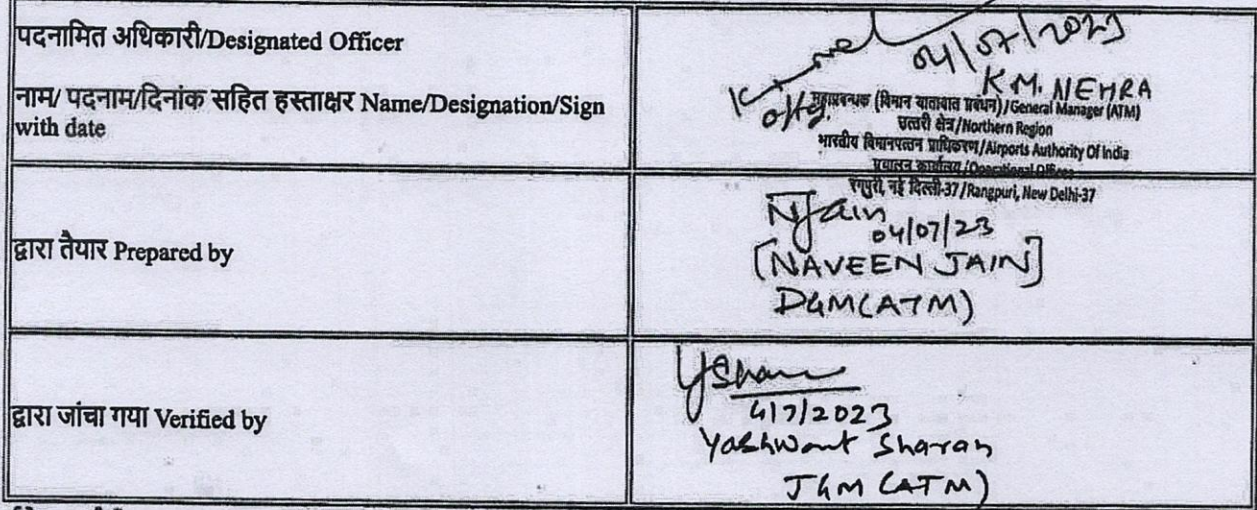 पदनामित अधिकारी/Designated Officer
नाम/ पदनाम/दिनांक सहित हस्ताक्षर Name/Designation/Sign
with date
04/07/2023
K.M. NEHRA
offg.
महाप्रबन्धक (विमान यातायात प्रबंधन)/General Manager (ATM)
उत्तरी क्षेत्र/Northern Region
भारतीय विमानपत्तन प्राधिकरण/Airports Authority Of India
प्रचालन कार्यालय/Operational Offices
रंगपुरी, नई दिल्ली-37/Rangpuri, New Delhi-37
द्वारा तैयार Prepared by
NJain
04/07/23
[NAVEEN JAIN]
DGM(ATM)
द्वारा जांचा गया Verified by
4/7/2023
Yashwant Sharan
JGM (ATM)